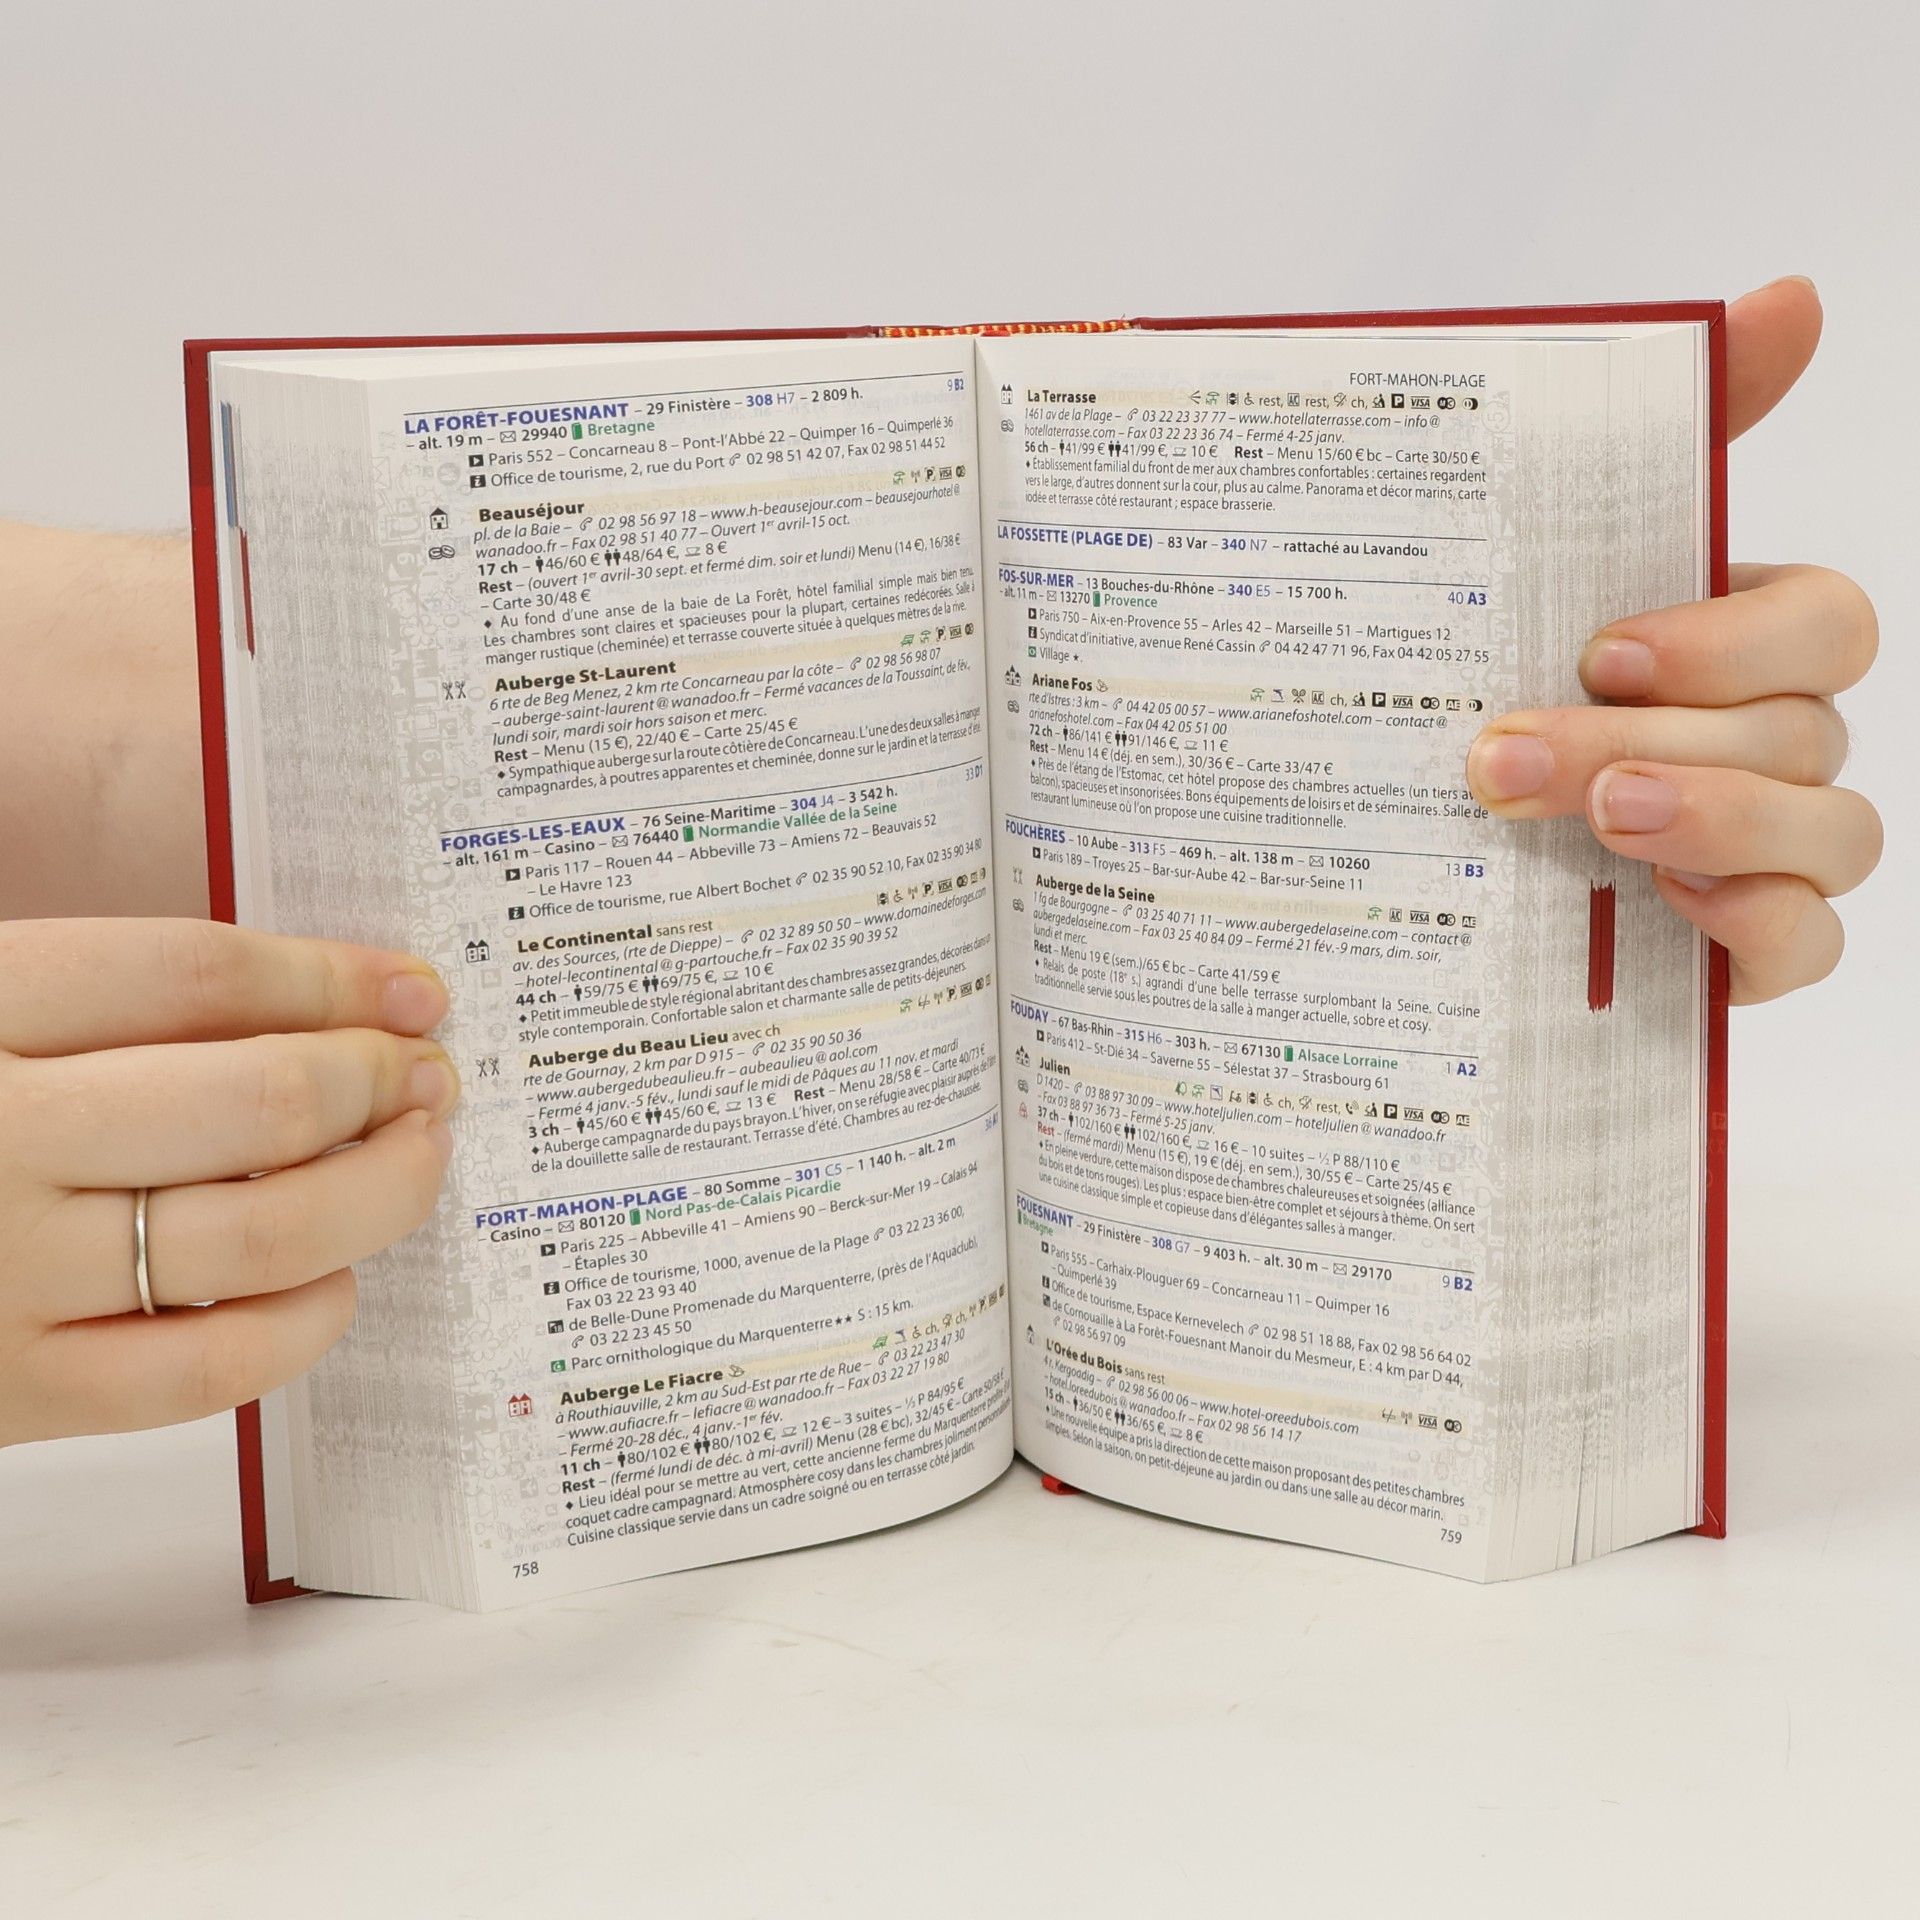 LA FORÊT-FOUESNANT – 29 Finistère – 308 H7 – 2 809 h. 9 B2
– alt. 19 m – 29940 Bretagne
Paris 552 – Concarneau 8 – Pont-l'Abbé 22 – Quimper 16 – Quimperlé 36
Office de tourisme, 2, rue du Port 02 98 51 42 07, Fax 02 98 51 44 52
Beauséjour
pl. de la Baie – 02 98 56 97 18 – www.h-beausejour.com – beausejourhotel@
wanadoo.fr – Fax 02 98 51 40 77 – Ouvert 1er avril-15 oct.
17 ch – 46/60 € 48/64 €, 8 €
Rest – (ouvert 1er avril-30 sept. et fermé dim. soir et lundi) Menu (14 €), 16/38 €
– Carte 30/48 €
♦ Au fond d'une anse de la baie de La Forêt, hôtel familial simple mais bien tenu.
Les chambres sont claires et spacieuses pour la plupart, certaines redécorées. Salle à
manger rustique (cheminée) et terrasse couverte située à quelques mètres de la rive.
Auberge St-Laurent
6 rte de Beg Menez, 2 km rte Concarneau par la côte – 02 98 56 98 07
– auberge-saint-laurent@wanadoo.fr – Fermé vacances de la Toussaint, de fév.,
lundi soir, mardi soir hors saison et merc.
Rest – Menu (15 €), 22/40 € – Carte 25/45 €
♦ Sympathique auberge sur la route côtière de Concarneau. L'une des deux salles à manger
campagnardes, à poutres apparentes et cheminée, donne sur le jardin et la terrasse d'été.
FORGES-LES-EAUX – 76 Seine-Maritime – 304 J4 – 3 542 h. 33 D1
– alt. 161 m – Casino – 76440 Normandie Vallée de la Seine
Paris 117 – Rouen 44 – Abbeville 73 – Amiens 72 – Beauvais 52
– Le Havre 123
Office de tourisme, rue Albert Bochet 02 35 90 52 10, Fax 02 35 90 34 80
Le Continental sans rest
av. des Sources, (rte de Dieppe) – 02 32 89 50 50 – www.domainedeforges.com
– hotel-lecontinental@g-partouche.fr – Fax 02 35 90 39 52
44 ch – 59/75 € 69/75 €, 10 €
♦ Petit immeuble de style régional abritant des chambres assez grandes, décorées dans un
style contemporain. Confortable salon et charmante salle de petits-déjeuners.
Auberge du Beau Lieu avec ch
rte de Gournay, 2 km par D 915 – 02 35 90 50 36
– www.aubergedubeaulieu.fr – aubeaulieu@aol.com
– Fermé 4 janv.-5 fév., lundi sauf le midi de Pâques au 11 nov. et mardi
3 ch – 45/60 € 45/60 €, 13 € Rest – Menu 28/58 € – Carte 40/73 €
♦ Auberge campagnarde du pays brayon. L'hiver, on se réfugie avec plaisir auprès de l'âtre
de la douillette salle de restaurant. Terrasse d'été. Chambres au rez-de-chaussée.
FORT-MAHON-PLAGE – 80 Somme – 301 C5 – 1 140 h. – alt. 2 m 36 A1
– Casino – 80120 Nord Pas-de-Calais Picardie
Paris 225 – Abbeville 41 – Amiens 90 – Berck-sur-Mer 19 – Calais 94
– Étaples 30
Office de tourisme, 1000, avenue de la Plage 03 22 23 36 00,
Fax 03 22 23 93 40
de Belle-Dune Promenade du Marquenterre, (près de l'Aquaclub),
03 22 23 45 50
Parc ornithologique du Marquenterre★★ S : 15 km.
Auberge Le Fiacre
à Routhiauville, 2 km au Sud-Est par rte de Rue – 03 22 23 47 30
– www.aufiacre.fr – lefiacre@wanadoo.fr – Fax 03 22 27 19 80
– Fermé 20-28 déc., 4 janv.-1er fév.
11 ch – 80/102 € 80/102 €, 12 € – 3 suites – ½ P 84/95 €
Rest – (fermé lundi de déc. à mi-avril) Menu (28 € bc), 32/45 € – Carte 50/58 €
♦ Lieu idéal pour se mettre au vert, cette ancienne ferme du Marquenterre profite d'un
coquet cadre campagnard. Atmosphère cosy dans les chambres joliment personnalisées.
Cuisine classique servie dans un cadre soigné ou en terrasse côté jardin.
758
FORT-MAHON-PLAGE
La Terrasse rest, rest, ch, P VISA
1461 av de la Plage – 03 22 23 37 77 – www.hotellaterrasse.com – info@
hotellaterrasse.com – Fax 03 22 23 36 74 – Fermé 4-25 janv.
56 ch – 41/99 € 41/99 €, 10 € Rest – Menu 15/60 € bc – Carte 30/50 €
♦ Établissement familial du front de mer aux chambres confortables : certaines regardent
vers le large, d'autres donnent sur la cour, plus au calme. Panorama et décor marins, carte
iodée et terrasse côté restaurant ; espace brasserie.
LA FOSSETTE (PLAGE DE) – 83 Var – 340 N7 – rattaché au Lavandou
FOS-SUR-MER – 13 Bouches-du-Rhône – 340 E5 – 15 700 h. 40 A3
– alt. 11 m – 13270 Provence
Paris 750 – Aix-en-Provence 55 – Arles 42 – Marseille 51 – Martigues 12
Syndicat d'initiative, avenue René Cassin 04 42 47 71 96, Fax 04 42 05 27 55
Village ★.
Ariane Fos ch, P VISA AE
rte d'Istres : 3 km – 04 42 05 00 57 – www.arianefoshotel.com – contact@
arianefoshotel.com – Fax 04 42 05 51 00
72 ch – 86/141 € 91/146 €, 11 €
Rest – Menu 14 € (déj. en sem.), 30/36 € – Carte 33/47 €
♦ Près de l'étang de l'Estomac, cet hôtel propose des chambres actuelles (un tiers
balcon), spacieuses et insonorisées. Bons équipements de loisirs et de séminaires. Salle de
restaurant lumineuse où l'on propose une cuisine traditionnelle.
FOUCHÈRES – 10 Aube – 313 F5 – 469 h. – alt. 138 m – 10260 13 B3
Paris 189 – Troyes 25 – Bar-sur-Aube 42 – Bar-sur-Seine 11
Auberge de la Seine VISA AE
1 fg de Bourgogne – 03 25 40 71 11 – www.aubergedelaseine.com – contact@
aubergedelaseine.com – Fax 03 25 40 84 09 – Fermé 21 fév.-9 mars, dim. soir,
lundi et merc.
Rest – Menu 19 € (sem.)/65 € bc – Carte 41/59 €
♦ Relais de poste (18e s.) agrandi d'une belle terrasse surplombant la Seine. Cuisine
traditionnelle servie sous les poutres de la salle à manger actuelle, sobre et cosy.
FOUDAY – 67 Bas-Rhin – 315 H6 – 303 h. – 67130 Alsace Lorraine 1 A2
Paris 412 – St-Dié 34 – Saverne 55 – Sélestat 37 – Strasbourg 61
Julien ch, rest, P VISA AE
D 1420 – 03 88 97 30 09 – www.hoteljulien.com – hoteljulien@wanadoo.fr
– Fax 03 88 97 36 73 – Fermé 5-25 janv.
37 ch – 102/160 € 102/160 €, 16 € – 10 suites – ½ P 88/110 €
Rest – (fermé mardi) Menu (15 €), 19 € (déj. en sem.), 30/55 € – Carte 25/45 €
♦ En pleine verdure, cette maison dispose de chambres chaleureuses et soignées (alliance
du bois et de tons rouges). Les plus : espace bien-être complet et séjours à thème. On sert
une cuisine classique simple et copieuse dans d'élégantes salles à manger.
FOUESNANT – 29 Finistère – 308 G7 – 9 403 h. – alt. 30 m – 29170 9 B2
Bretagne
Paris 555 – Carhaix-Plouguer 69 – Concarneau 11 – Quimper 16
– Quimperlé 39
Office de tourisme, Espace Kernevelech 02 98 51 18 88, Fax 02 98 56 64 02
de Cornouaille à La Forêt-Fouesnant Manoir du Mesmeur, E : 4 km par D 44,
02 98 56 97 09
L'Orée du Bois sans rest VISA
4 r. Kergoadig – 02 98 56 00 06 – www.hotel-oreedubois.com
– hotel.loreedubois@wanadoo.fr – Fax 02 98 56 14 17
15 ch – 36/50 € 36/65 €, 8 €
♦ Une nouvelle équipe a pris la direction de cette maison proposant des petites chambres
simples. Selon la saison, on petit-déjeune au jardin ou dans une salle au décor marin.
759